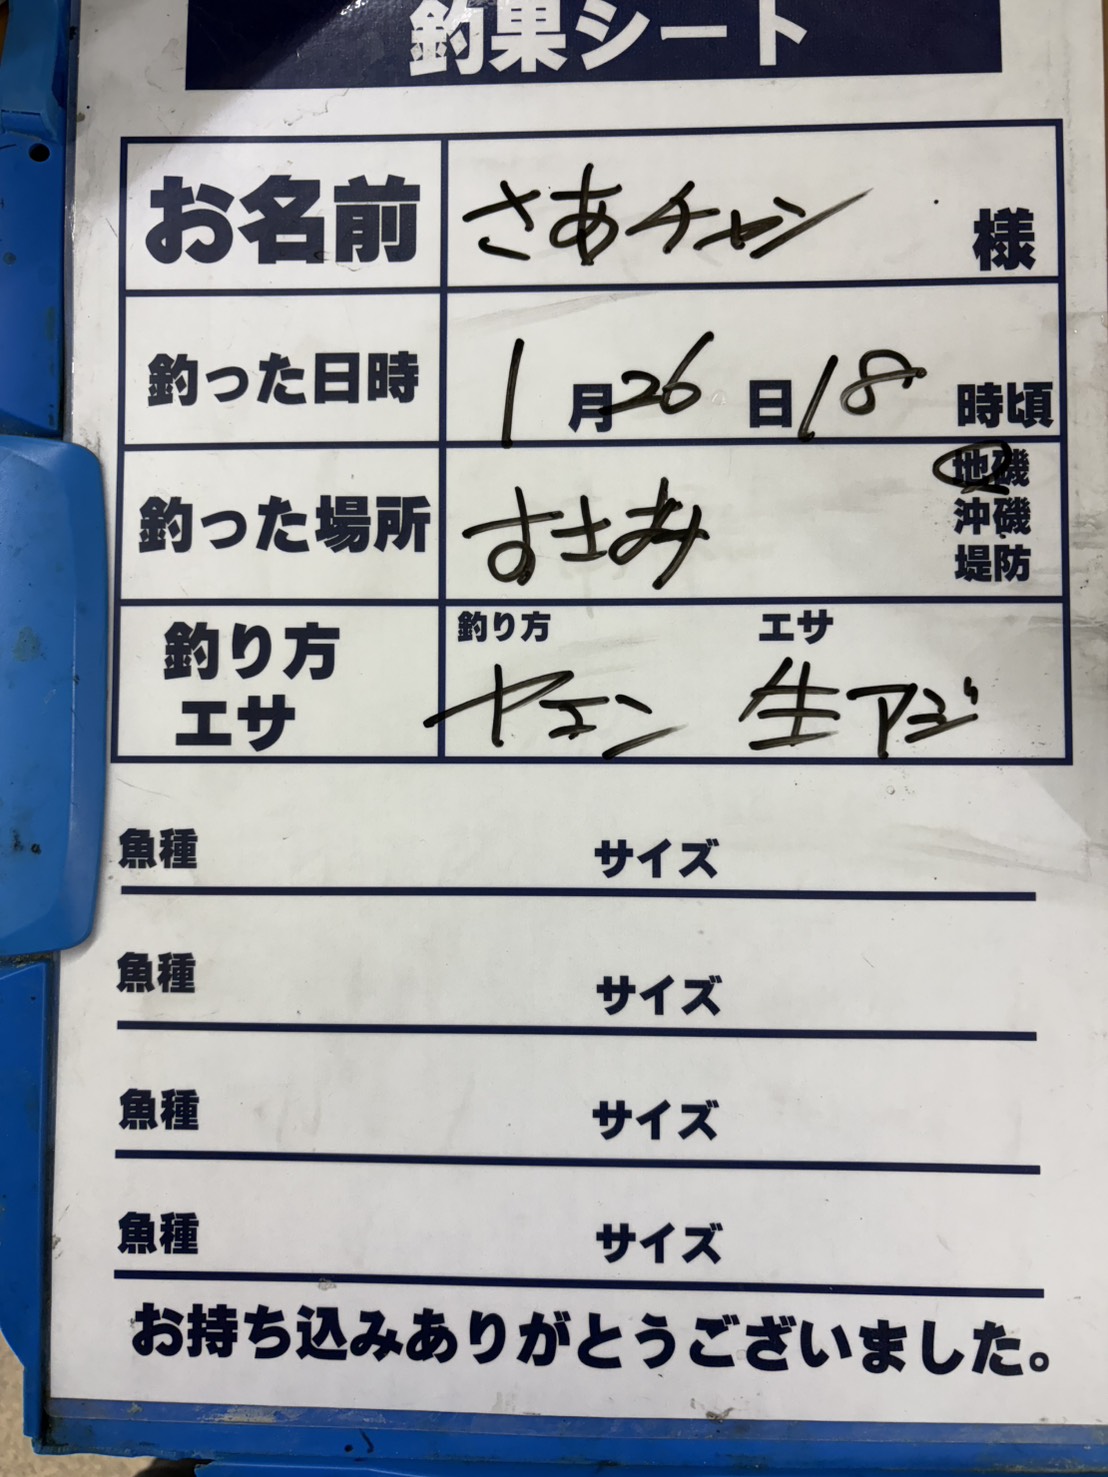 釣果シート
お名前 さあチャン 様
釣った日時 1月26日18時頃
釣った場所 すさみ 地磯
沖磯
堤防
釣り方 エサ
釣り方 エサ
ヤエン 生アジ
魚種 サイズ
魚種 サイズ
魚種 サイズ
魚種 サイズ
お持ち込みありがとうございました。